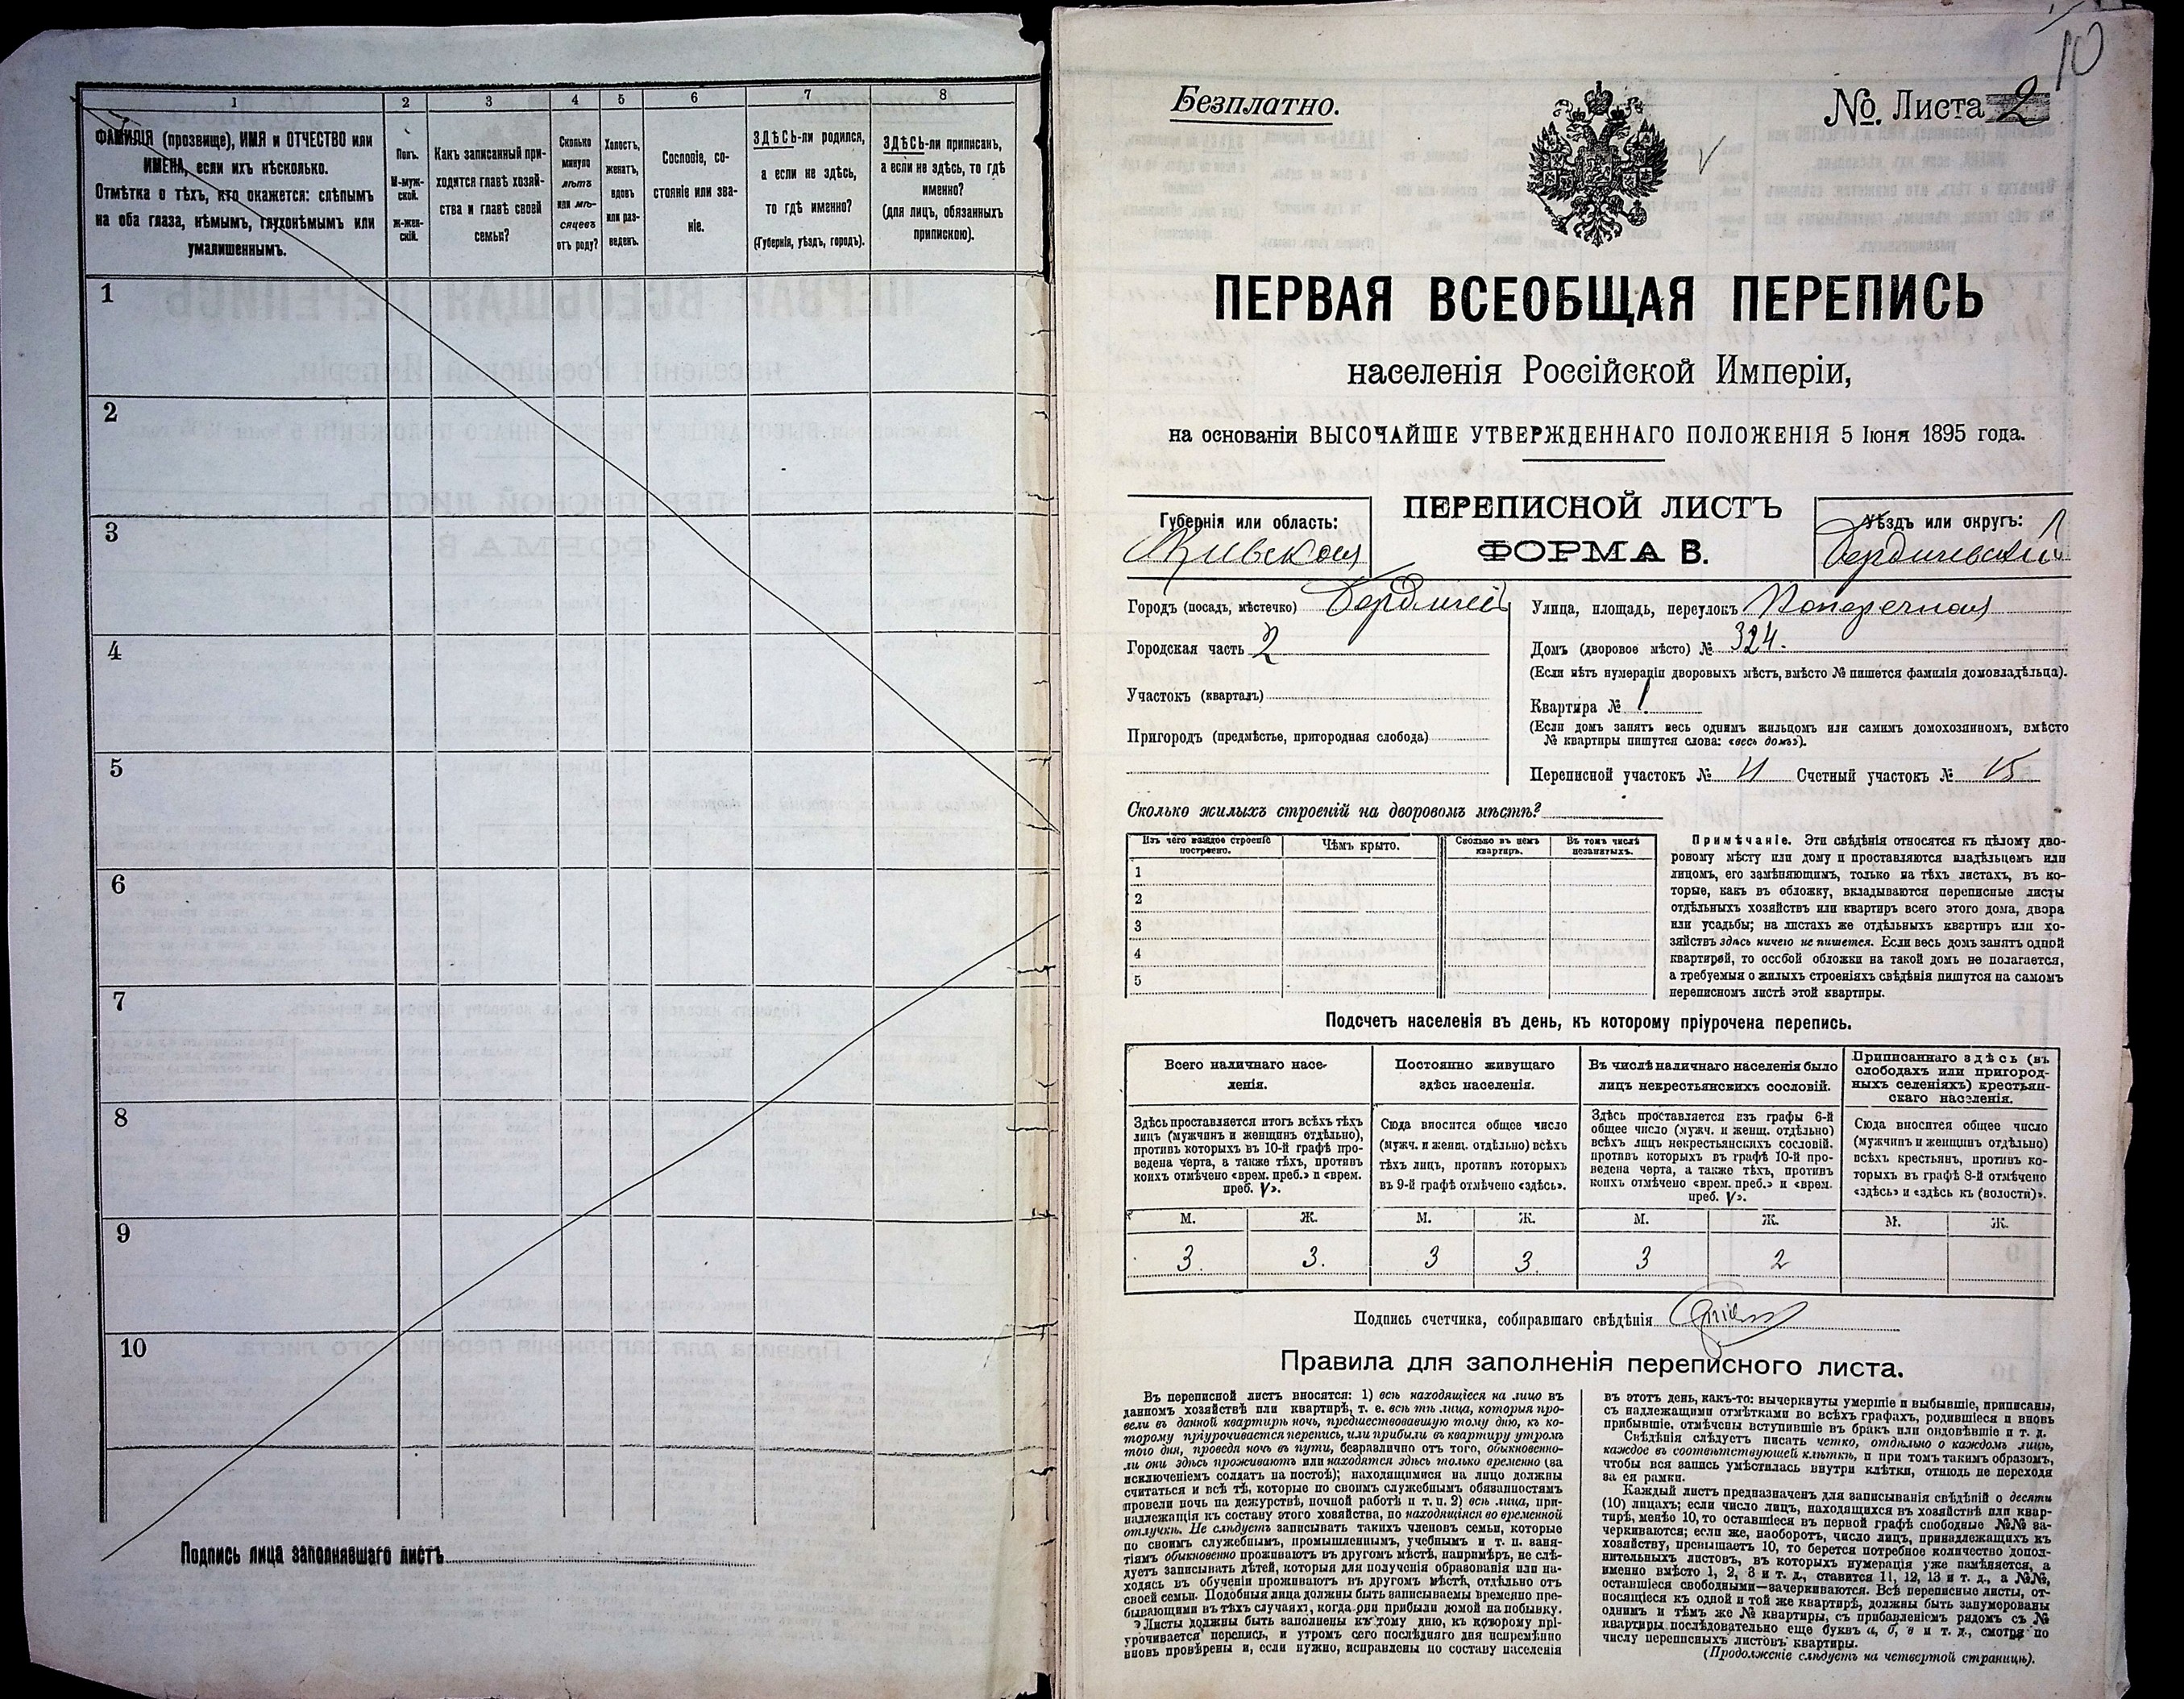 1 2 3 4 5 6 7 8
ФАМИЛІЯ (прозвище), ИМЯ и ОТЧЕСТВО или
ИМЕНА, если ихъ нѣсколько.
Отмѣтка о тѣхъ, кто окажется: слѣпымъ
на оба глаза, нѣмымъ, глухонѣмымъ или
умалишеннымъ.
Полъ.
М-муж-
ской.
Ж-жен-
скій.
Какъ записанный при-
ходится главѣ хозяй-
ства и главѣ своей
семьи?
Сколько
минуло
лѣтъ
или мѣ-
сяцевъ
отъ роду?
Холостъ,
женатъ,
вдовъ
или раз-
веденъ.
Сословіе, со-
стояніе или зва-
ніе.
ЗДѢСЬ-ли родился,
а если не здѣсь,
то гдѣ именно?
(Губернія, уѣздъ, городъ).
ЗДѢСЬ-ли приписанъ,
а если не здѣсь, то гдѣ
именно?
(для лицъ, обязанныхъ
припискою).
1
2
3
4
5
6
7
8
9
10
Подпись лица заполнявшаго листъ
10
Безплатно.
№. Листа 2
ПЕРВАЯ ВСЕОБЩАЯ ПЕРЕПИСЬ
населенія Россійской Имперіи,
на основаніи ВЫСОЧАЙШЕ УТВЕРЖДЕННАГО ПОЛОЖЕНІЯ 5 Іюня 1895 года.
Губернія или область:
Кіевская
ПЕРЕПИСНОЙ ЛИСТЪ
ФОРМА В.
Уѣздъ или округъ:
Бердичевскій
Городъ (посадъ, мѣстечко) Бердичевъ
Городская часть 2
Участокъ (кварталъ)
Пригородъ (предмѣстье, пригородная слобода)
Улица, площадь, переулокъ Поперечная
Домъ (дворовое мѣсто) № 324.
(Если нѣтъ нумераціи дворовыхъ мѣстъ, вмѣсто № пишется фамилія домовладѣльца).
Квартира № 1
(Если домъ занятъ весь однимъ жильцомъ или самимъ домохозяиномъ, вмѣсто
№ квартиры пишутся слова: «весь домъ»).
Переписной участокъ № 4 Счетный участокъ № 15
Сколько жилыхъ строеній на дворовомъ мѣстѣ?
Изъ чего каждое строеніе
построено.
Чѣмъ крыто.
Сколько въ немъ
квартиръ.
Въ томъ числѣ
незанятыхъ.
1
2
3
4
5
Примѣчаніе. Эти свѣдѣнія относятся къ цѣлому дво-
ровому мѣсту или дому и проставляются владѣльцемъ или
лицомъ, его замѣняющимъ, только на тѣхъ листахъ, въ ко-
торые, какъ въ обложку, вкладываются переписные листы
отдѣльныхъ хозяйствъ или квартиръ всего этого дома, двора
или усадьбы; на листахъ же отдѣльныхъ квартиръ или хо-
зяйствъ здѣсь ничего не пишется. Если весь домъ занятъ одной
квартирой, то особой обложки на такой домъ не полагается,
а требуемыя о жилыхъ строеніяхъ свѣдѣнія пишутся на самомъ
переписномъ листѣ этой квартиры.
Подсчетъ населенія въ день, къ которому пріурочена перепись.
Всего наличнаго насе-
ленія.
Постоянно живущаго
здѣсь населенія.
Въ числѣ наличнаго населенія было
лицъ некрестьянскихъ сословій.
Приписаннаго здѣсь (въ
слободахъ или пригород-
ныхъ селеніяхъ) крестьян-
скаго населенія.
Здѣсь проставляется итогъ всѣхъ тѣхъ
лицъ (мужчинъ и женщинъ отдѣльно),
противъ которыхъ въ 10-й графѣ про-
ведена черта, а также тѣхъ, противъ
коихъ отмѣчено «врем. преб.» и «врем.
преб. V».
Сюда вносится общее число
(мужч. и женщ. отдѣльно) всѣхъ
тѣхъ лицъ, противъ которыхъ
въ 9-й графѣ отмѣчено «здѣсь».
Здѣсь проставляется изъ графы 6-й
общее число (мужч. и женщ. отдѣльно)
всѣхъ лицъ некрестьянскихъ сословій.
противъ которыхъ въ графѣ 10-й про-
ведена черта, а также тѣхъ, противъ
коихъ отмѣчено «врем. преб.» и «врем.
преб. V».
Сюда вносится общее число
(мужчинъ и женщинъ отдѣльно)
всѣхъ крестьянъ, противъ ко-
торыхъ въ графѣ 8-й отмѣчено
«здѣсь» и «здѣсь къ (волости)».
М. Ж. М. Ж. М. Ж. М. Ж.
3. 3. 3 3. 3 2
Подпись счетчика, собиравшаго свѣдѣнія
Правила для заполненія переписного листа.
Въ переписной листъ вносятся: 1) всѣ находящіеся на лицо въ
данномъ хозяйствѣ или квартирѣ, т. е. всѣ тѣ лица, которыя про-
вели въ данной квартирѣ ночь, предшествовавшую тому дню, къ ко-
торому пріурочивается перепись, или прибыли въ квартиру утромъ
того дня, проведя ночь въ пути, безразлично отъ того, обыкновенно-
ли они здѣсь проживаютъ или находятся здѣсь только временно (за
исключеніемъ солдатъ на постоѣ); находящимися на лицо должны
считаться и всѣ тѣ, которые по своимъ служебнымъ обязанностямъ
провели ночь на дежурствѣ, ночной работѣ и т. п. 2) всѣ лица, при-
надлежащія къ составу этого хозяйства, но находящіяся во временной
отлучкѣ. Не слѣдуетъ записывать такихъ членовъ семьи, которые
по своимъ служебнымъ, промышленнымъ, учебнымъ и т. п. заня-
тіямъ обыкновенно проживаютъ въ другомъ мѣстѣ, напримѣръ, не слѣ-
дуетъ записывать дѣтей, которыя для полученія образованія или на-
ходясь въ обученіи проживаютъ въ другомъ мѣстѣ, отдѣльно отъ
своей семьи. Подобныя лица должны быть записываемы временно пре-
бывающими въ тѣхъ случаяхъ, когда они прибыли домой на побывку.
Листы должны быть заполнены къ тому дню, къ которому прі-
урочивается перепись, и утромъ сего послѣдняго дня непремѣнно
вновь провѣрены и, если нужно, исправлены по составу населенія
въ этотъ день, какъ-то: вычеркнуты умершіе и выбывшіе, приписаны,
съ надлежащими отмѣтками во всѣхъ графахъ, родившіеся и вновь
прибывшіе, отмѣчены вступившіе въ бракъ или овдовѣвшіе и т. д.
Свѣдѣнія слѣдуетъ писать четко, отдѣльно о каждомъ лицѣ,
каждое въ соотвѣтствующей клѣткѣ, и при томъ такимъ образомъ,
чтобы вся запись умѣстилась внутри клѣтки, отнюдь не переходя
за ея рамки.
Каждый листъ предназначенъ для записыванія свѣдѣній о десяти
(10) лицахъ; если число лицъ, находящихся въ хозяйствѣ или квар-
тирѣ, менѣе 10, то оставшіеся въ первой графѣ свободные №№ за-
черкиваются; если же, наоборотъ, число лицъ, принадлежащихъ къ
хозяйству, превышаетъ 10, то берется потребное количество допол-
нительныхъ листовъ, въ которыхъ нумерація уже измѣняется, а
именно вмѣсто 1, 2, 3 и т. д., ставится 11, 12, 13 и т. д., а №№,
оставшіеся свободными—зачеркиваются. Всѣ переписные листы, от-
носящіеся къ одной и той же квартирѣ, должны быть занумерованы
однимъ и тѣмъ же № квартиры, съ прибавленіемъ рядомъ съ №
квартиры послѣдовательно еще буквъ а, б, в и т. д., смотря по
числу переписныхъ листовъ квартиры.
(Продолженіе слѣдуетъ на четвертой страницѣ).